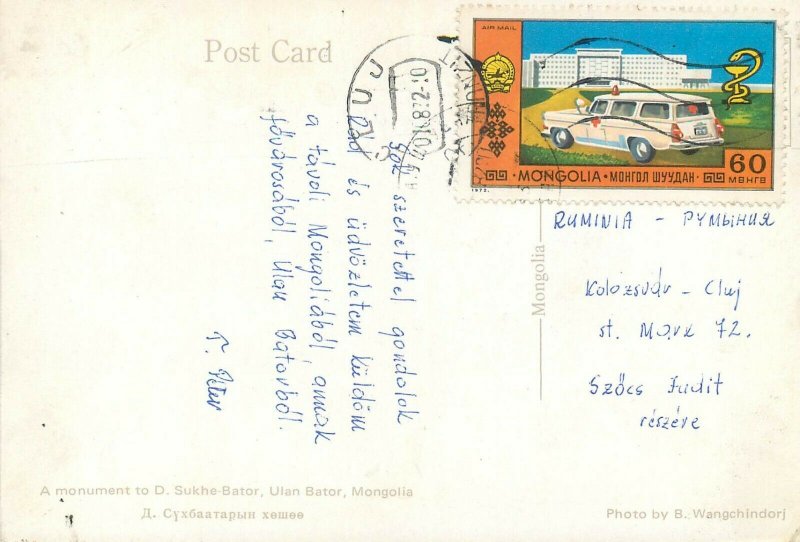 Post Card
AIR MAIL
MONGOLIA · МОНГОЛ ШУУДАН
60
МӨНГӨ
1972.
Sok szeretettel gondolok
Rád és üdvözletem küldöm
a távoli Mongoliából, annak
fővárosából, Ulan Batorból.
T. Péter
Mongolia
RUMINIA - РУМЫНИЯ
Kolozsvár - Cluj
st. Marx 72.
Szőcs Judit
részére
A monument to D. Sukhe-Bator, Ulan Bator, Mongolia
Д. Сүхбаатарын хөшөө
Photo by B. Wangchindorj